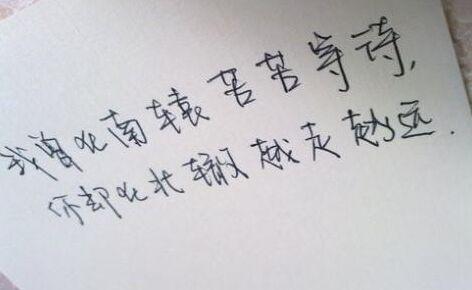 我曾以南辕苦苦等待，
你却以北辙越走越远.